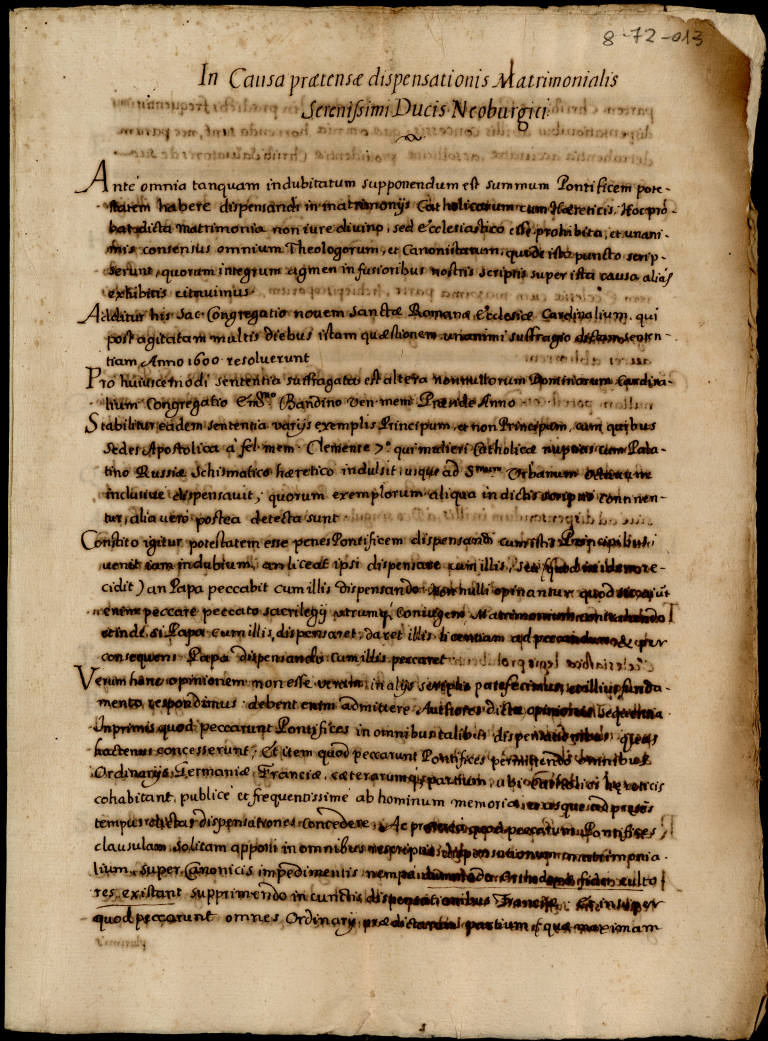 8-72-013
In Causa prætensæ dispensationis Matrimonialis
Serenissimi Ducis Neoburgici
Ante omnia tanquam indubitatum supponendum est summum Pontificem pote-
statem habere dispensandi in matrimonijs Catholicorum cum Hæreticis. Hoc pro-
bat dicta matrimonia non iure divino, sed ecclesiastico esse prohibita, et unani-
mis consensus omnium Theologorum, et Canonistarum, qui de isto puncto scrip-
serunt, quorum integrum agmen in fusioribus nostris scriptis super ista causa alias
exhibitis citavimus.
Additur his Sac. Congregatio novem Sanctæ Romanæ Ecclesiæ Cardinalium, qui
post agitatam multis diebus istam quæstionem unanimi suffragio senten-
tiam Anno 1600 resolverunt
Pro huiuscemodi sententia suffragata est altera nonnullorum Dominorum Cardina-
lium Congregatio Bandino ven. mem. Præside Anno
Stabilitur eadem sententia varijs exemplis Principum, et non Principum, cum quibus
Sedes Apostolica à fel. mem. Clemente 7.º qui mulieri Catholicæ nuptias cum Pala-
tino Russiæ Schismatico hæretico indulsit, usque ad Urbanum
inclusive dispensavit; quorum exemplorum aliqua in dictis scriptis continen-
tur, alia vero postea detecta sunt
Constito igitur potestatem esse penes Pontificem dispensandi cum istis Principibus,
venit iam in dubium, an liceat ipsi dispensare cum illis,
cidit) an Papa peccabit cum illis dispensando. Non nulli opinantur quod sic, aiunt
enim peccare peccato sacrilegij utrumq. Coniugem Matrimonium
et inde, si Papa cum illis dispensaret, daret illis licentiam ad et per
consequens Papa dispensando cum illis peccaret
Verum hanc opinionem non esse veram, in alijs scriptis patefecimus, et illius funda-
mento respondimus: debent enim admittere Authores dictæ opinionis sequentia.
Inprimis quod peccarunt Pontifices in omnibus talibus dispensationibus, quas
hactenus concesserunt; Et item quod peccarunt Pontifices permittendo omnibus
Ordinarijs Germaniæ, Franciæ, cæterarumq; partium, ubi Catholici hæreticis
cohabitant, publice et frequentissime ab hominum memoria usque ad præsens
tempus dictas dispensationes concedere. Ac quod peccarunt Pontifices
clausulam solitam apponi in omnibus rescriptis dispensationum matrimonia-
lium super Canonicis impedimentis nempe fidei culto-
res existant supprimendo in cunctis dispensationibus Franciæ: Et insuper
quod peccarunt omnes Ordinarij prædictarum partium qui maximam